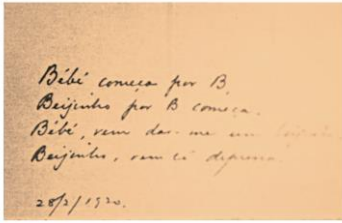 Bébé começa por B
Beijinho por B começa.
Bébé, vem dar-me um beijinho
Beijinho, vem cá depressa.
28/2/1920.